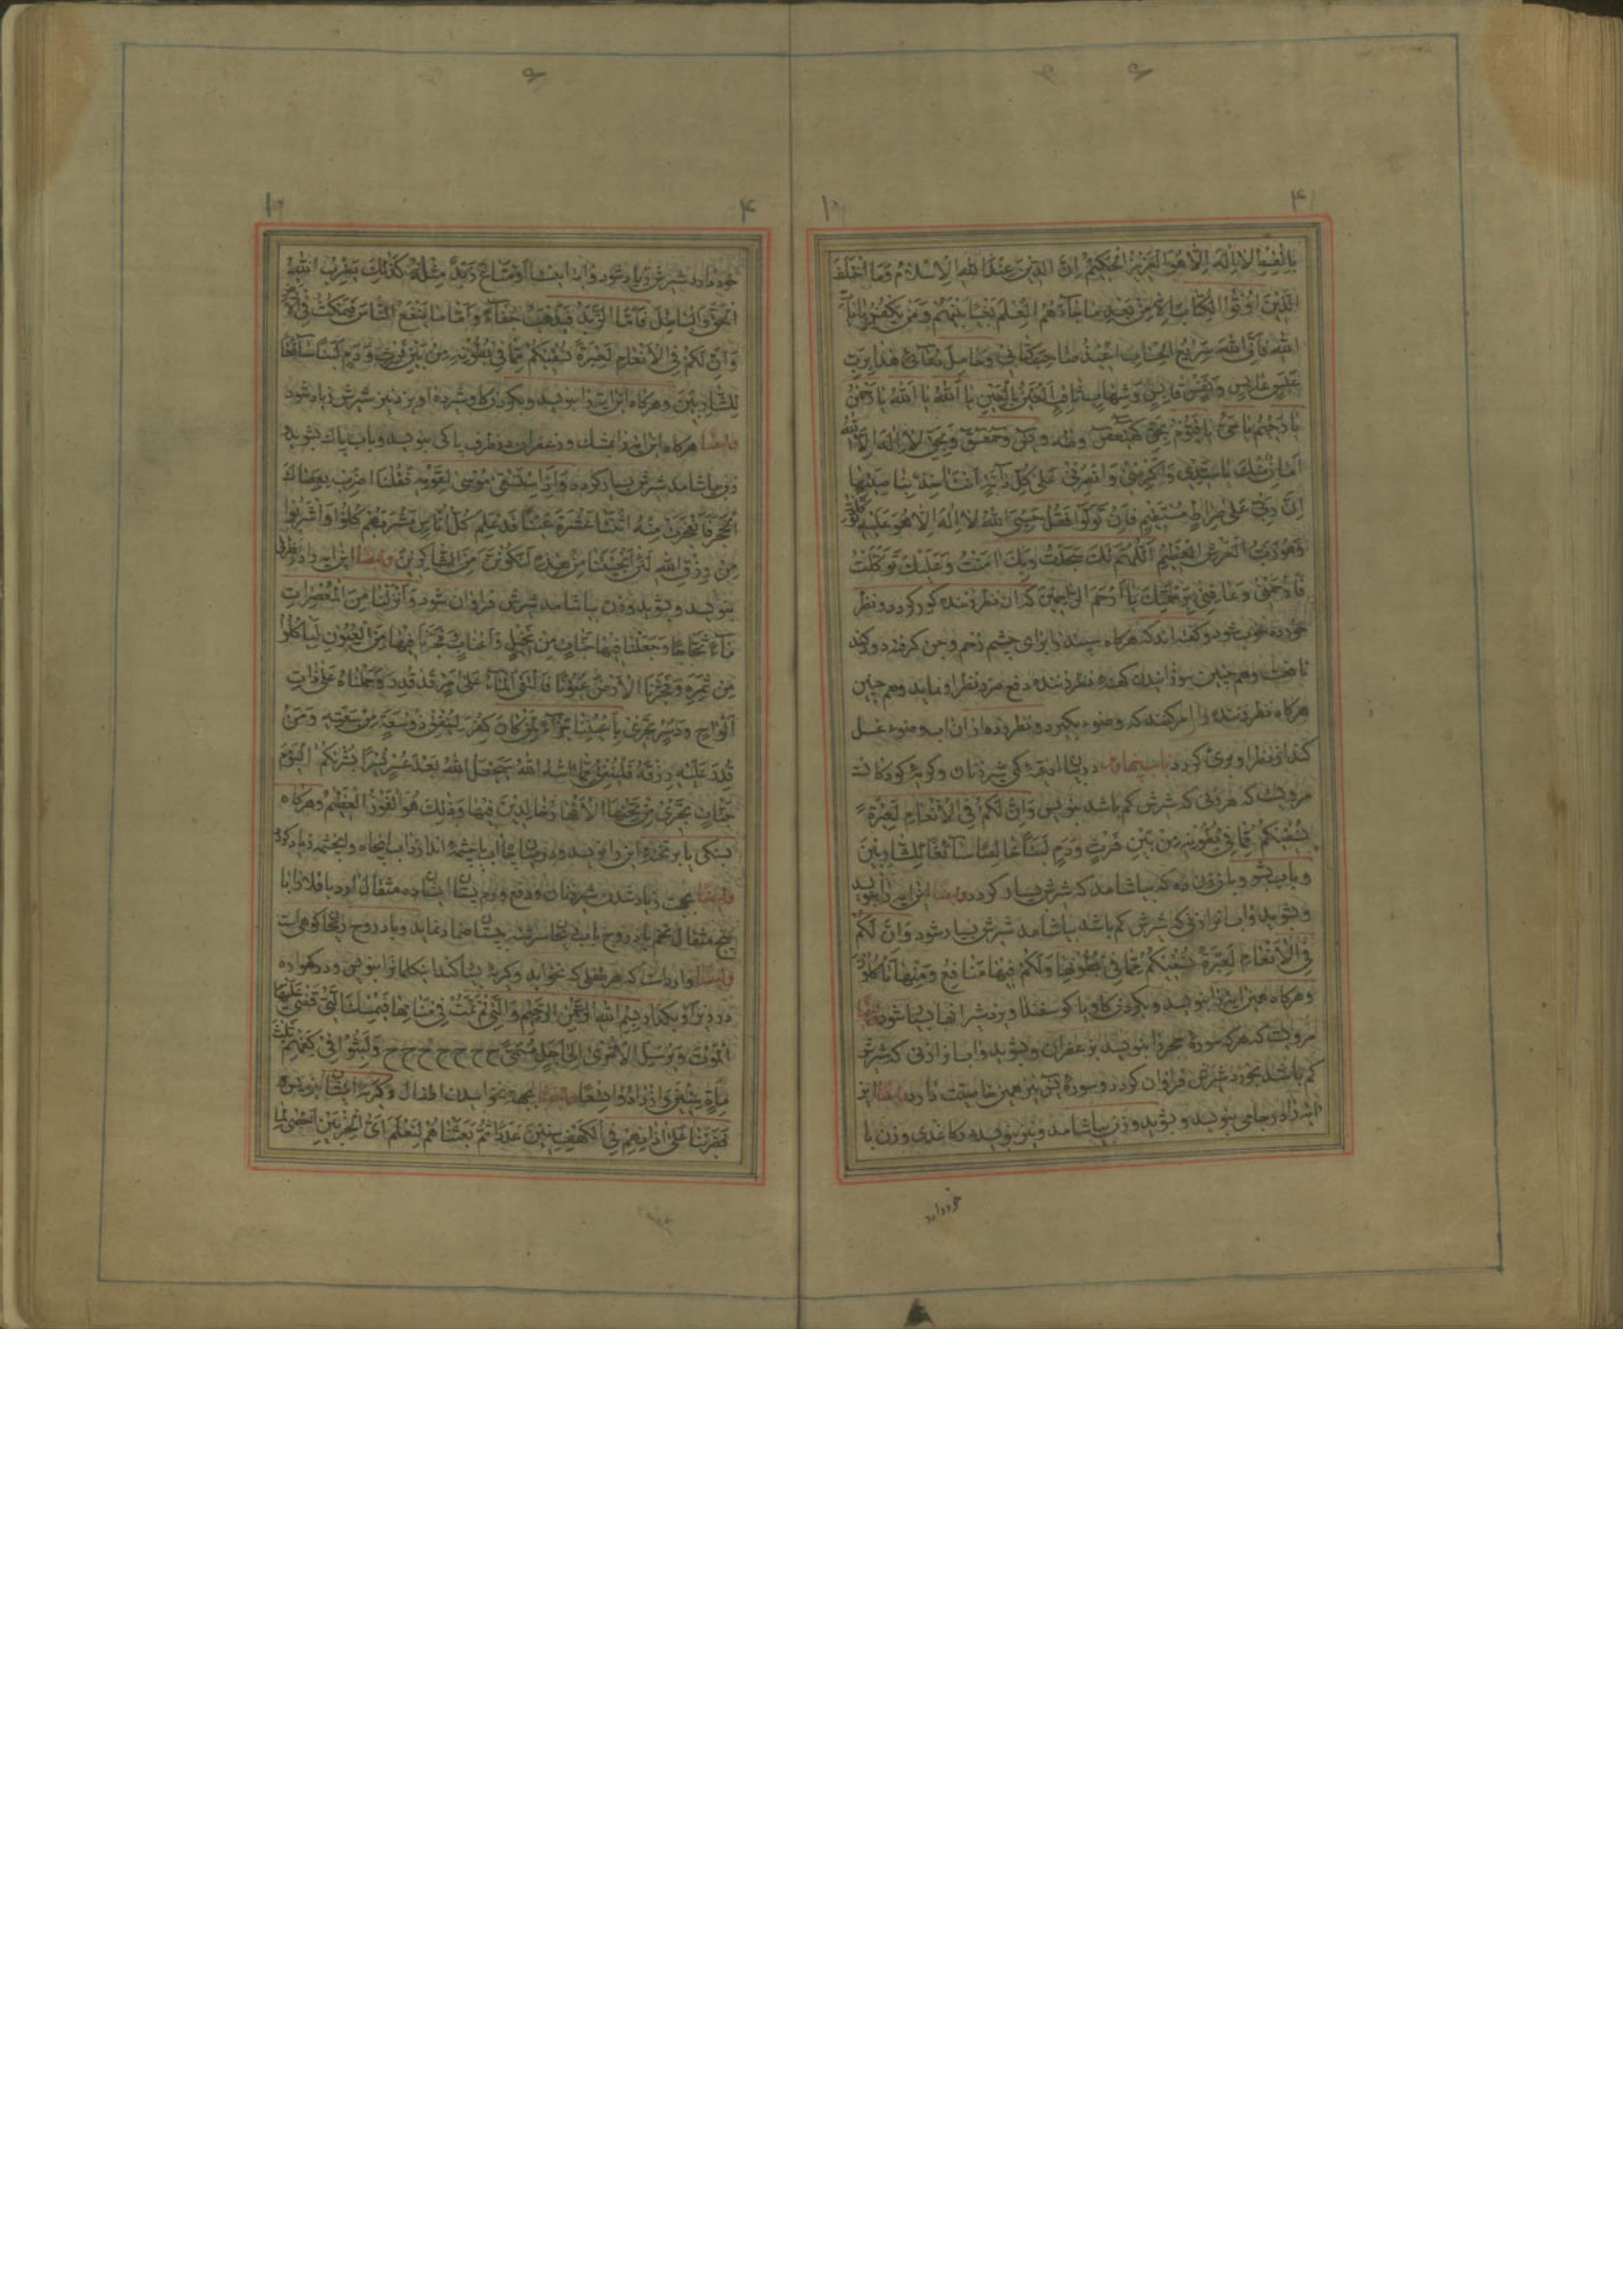 بِالْقِسْطِ لا اِلٰهَ اِلّا هُوَ الْعَزِيزُ الْحَكِيمُ اِنَّ الدِّينَ عِنْدَ اللهِ الْاِسْلامُ وَمَا اخْتَلَفَ
الَّذِينَ اُوتُوا الْكِتابَ اِلّا مِنْ بَعْدِ ما جاءَهُمُ الْعِلْمُ بَغْيًا بَيْنَهُمْ وَمَنْ يَكْفُرْ بِاٰياتِ
اللهِ فَاِنَّ اللهَ سَرِيعُ الْحِسابِ اُعِيذُ صاحِبَ كِتابِي وَحامِلَ
عَبَسٍ عابِسٍ وَشِهابٍ ثاقِبٍ الْعَيْنَ بِالْعَيْنِ يا اَللهُ يا اَللهُ يا رَحْمٰنُ
يا رَحِيمُ يا حَيُّ يا قَيُّومُ بِحَقِّ كهيعص وطه و يس وحمعسق وَبِحَقِّ لا اِلٰهَ اِلَّا اللهُ
يا سَيِّدِي عَلىٰ كُلِّ دابَّةٍ اَنْتَ اٰخِذٌ بِناصِيَتِها
اِنَّ رَبِّي عَلىٰ صِراطٍ مُسْتَقِيمٍ فَاِنْ تَوَلَّوْا فَقُلْ حَسْبِيَ اللهُ لا اِلٰهَ اِلّا هُوَ عَلَيْهِ تَوَكَّلْتُ
وَهُوَ رَبُّ الْعَرْشِ الْعَظِيمِ اَللّٰهُمَّ لَكَ سَجَدْتُ وَبِكَ اٰمَنْتُ وَعَلَيْكَ تَوَكَّلْتُ
فَارْحَمْنِي وَعافِنِي بِرَحْمَتِكَ يا اَرْحَمَ الرّاحِمِينَ كه ان نظر زننده كور كردد و نظر
خورده خوب شود و كفته اند كه هركاه سپند را براى چشم زخم و جن كرفته دود كند
نافعست وهم چنين سوزانيدن كهنه نظر زننده دفع ضرر نظر او نمايد وهم چنين
هركاه نظر زننده را امر كنند كه وضوء بكيرد و نظر زده از ان اب وضوء غسل
كند از نظر او برى كردد باب پنجاهم در ادعيه كمى شير زنان و كريه كودكانست
مرويست كه هر زنى كه شيرش كم باشد بنويس وَاِنَّ لَكُمْ فِي الْاَنْعامِ لَعِبْرَةً
نُسْقِيكُمْ مِمّا فِي بُطُونِهِ مِنْ بَيْنِ فَرْثٍ وَدَمٍ لَبَنًا خالِصًا سائِغًا لِلشّارِبِينَ
و باب بشو و بان زن ده كه بياشامد كه شيرش بسيار كردد وايضا اين ايه را بنويسد
و بشويد و اب انرا زنى كه شيرش كم باشد بياشامد شيرش بسيار شود وَاِنَّ لَكُمْ
فِي الْاَنْعامِ لَعِبْرَةً نُسْقِيكُمْ مِمّا فِي بُطُونِها وَلَكُمْ فِيها مَنافِعُ وَمِنْها تَأْكُلُونَ
و هركاه همين ايه را بنويسد و بكردن كاو يا كوسفند اويزند شير انها بسيار شود وايضا
مرويست كه هركه سوره حجر را بنويسد بزعفران و بشويد و اب انرا زنى كه شيرش
كم باشد بخورد شيرش فراوان كردد و سوره يس نيز همين خاصيت دارد وايضا اين
ايه را در جامى بنويسد و بشويد و زن بياشامد و نيز بنويسد در كاغذى و زن با
خود دارد
خود دارد شيرش زياد شود وايه اينست اَوْ مَتاعٍ زَبَدٌ مِثْلُهُ كَذٰلِكَ يَضْرِبُ اللهُ
الْحَقَّ وَالْباطِلَ فَاَمَّا الزَّبَدُ فَيَذْهَبُ جُفاءً وَاَمّا ما يَنْفَعُ النّاسَ فَيَمْكُثُ فِي الْاَرْضِ
وَاِنَّ لَكُمْ فِي الْاَنْعامِ لَعِبْرَةً نُسْقِيكُمْ مِمّا فِي بُطُونِهِ مِنْ بَيْنِ فَرْثٍ وَدَمٍ لَبَنًا سائِغًا
لِلشّارِبِينَ و هركاه اين ايه را بنويسد و بكردن كاو شيرده اويزد نيز شيرش زياد شود
وايضا هركاه اين ايه را بمشك و زعفران در ظرف پاكى بنويسد و باب پاك بشويد
و زن بياشامد شيرش بسيار كردد وَاِذِ اسْتَسْقىٰ مُوسىٰ لِقَوْمِهِ فَقُلْنَا اضْرِبْ بِعَصاكَ
الْحَجَرَ فَانْفَجَرَتْ مِنْهُ اثْنَتا عَشْرَةَ عَيْنًا قَدْ عَلِمَ كُلُّ اُناسٍ مَشْرَبَهُمْ كُلُوا وَاشْرَبُوا
مِنْ رِزْقِ اللهِ لَئِنْ اَنْجَيْتَنا مِنْ هٰذِهِ لَنَكُونَنَّ مِنَ الشّاكِرِينَ وايضا اين ايه را در ظرفى
بنويسد و بشويد و زن بياشامد شيرش فراوان شود وَاَنْزَلْنا مِنَ الْمُعْصِراتِ
ماءً ثَجّاجًا وَجَعَلْنا فِيها جَنّاتٍ مِنْ نَخِيلٍ وَاَعْنابٍ وَفَجَّرْنا فِيها مِنَ الْعُيُونِ لِيَأْكُلُوا
مِنْ ثَمَرِهِ وَفَجَّرْنَا الْاَرْضَ عُيُونًا فَالْتَقَى الْماءُ عَلىٰ اَمْرٍ قَدْ قُدِرَ وَحَمَلْناهُ عَلىٰ ذاتِ
اَلْواحٍ وَدُسُرٍ تَجْرِي بِاَعْيُنِنا جَزاءً لِمَنْ كانَ كُفِرَ لِيُنْفِقْ ذُو سَعَةٍ مِنْ سَعَتِهِ وَمَنْ
قُدِرَ عَلَيْهِ رِزْقُهُ فَلْيُنْفِقْ مِمّا اٰتاهُ اللهُ سَيَجْعَلُ اللهُ بَعْدَ عُسْرٍ يُسْرًا بُشْريٰكُمُ الْيَوْمَ
جَنّاتٌ تَجْرِي مِنْ تَحْتِهَا الْاَنْهارُ خالِدِينَ فِيها وَذٰلِكَ هُوَ الْفَوْزُ الْعَظِيمُ و هركاه
بسنكى يا بر تخته اين را بنويسد و در چاه اب يا چشمه اندازد اب انچاه و انچشمه زياد كردد
وايضا بجهت زياد شدن شير زنان و دفع ورم پستان ايشان ده مثقال ارد باقلا را با
پنج مثقال تخم بادروج باب سرشته بپستان ضماد نمايد و بادروج ريحان كوهى است
وايضا وارد است كه هر طفلى كه نخوابد و كريه بسيار كند اين كلمات را بنويس و در كهواره
در زير او بكذار بِسْمِ اللهِ الرَّحْمٰنِ الرَّحِيمِ وَالَّتِي لَمْ تَمُتْ فِي مَنامِها فَيُمْسِكُ الَّتِي قَضىٰ عَلَيْهَا
الْمَوْتَ وَيُرْسِلُ الْاُخْرىٰ اِلىٰ اَجَلٍ مُسَمًّى ح ح ح ح ح ح ح وَلَبِثُوا فِي كَهْفِهِمْ ثَلٰثَ
مِائَةٍ سِنِينَ وَازْدادُوا تِسْعًا وايضا بجهة خوابيدن اطفال و كريه ايشان بنويس
فَضَرَبْنا عَلىٰ اٰذانِهِمْ فِي الْكَهْفِ سِنِينَ عَدَدًا ثُمَّ بَعَثْناهُمْ لِنَعْلَمَ اَيُّ الْحِزْبَيْنِ اَحْصىٰ لِما